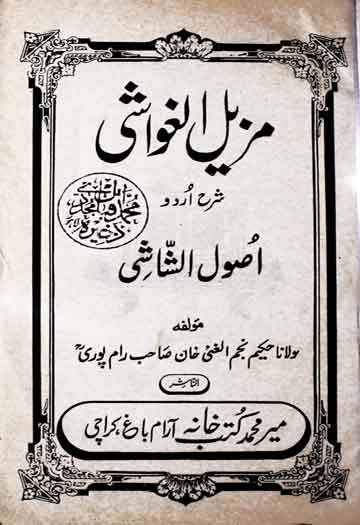 مزیل الغواشی
شرح اُردو
اُصول الشّاشی
محمد اقبال مجددی
ذخیرہ
مؤلفہ
مولانا حکیم نجم الغنی خان صاحب رام پوریؒ
الناشر
میر محمد کتب خانہ آرام باغ، کراچی